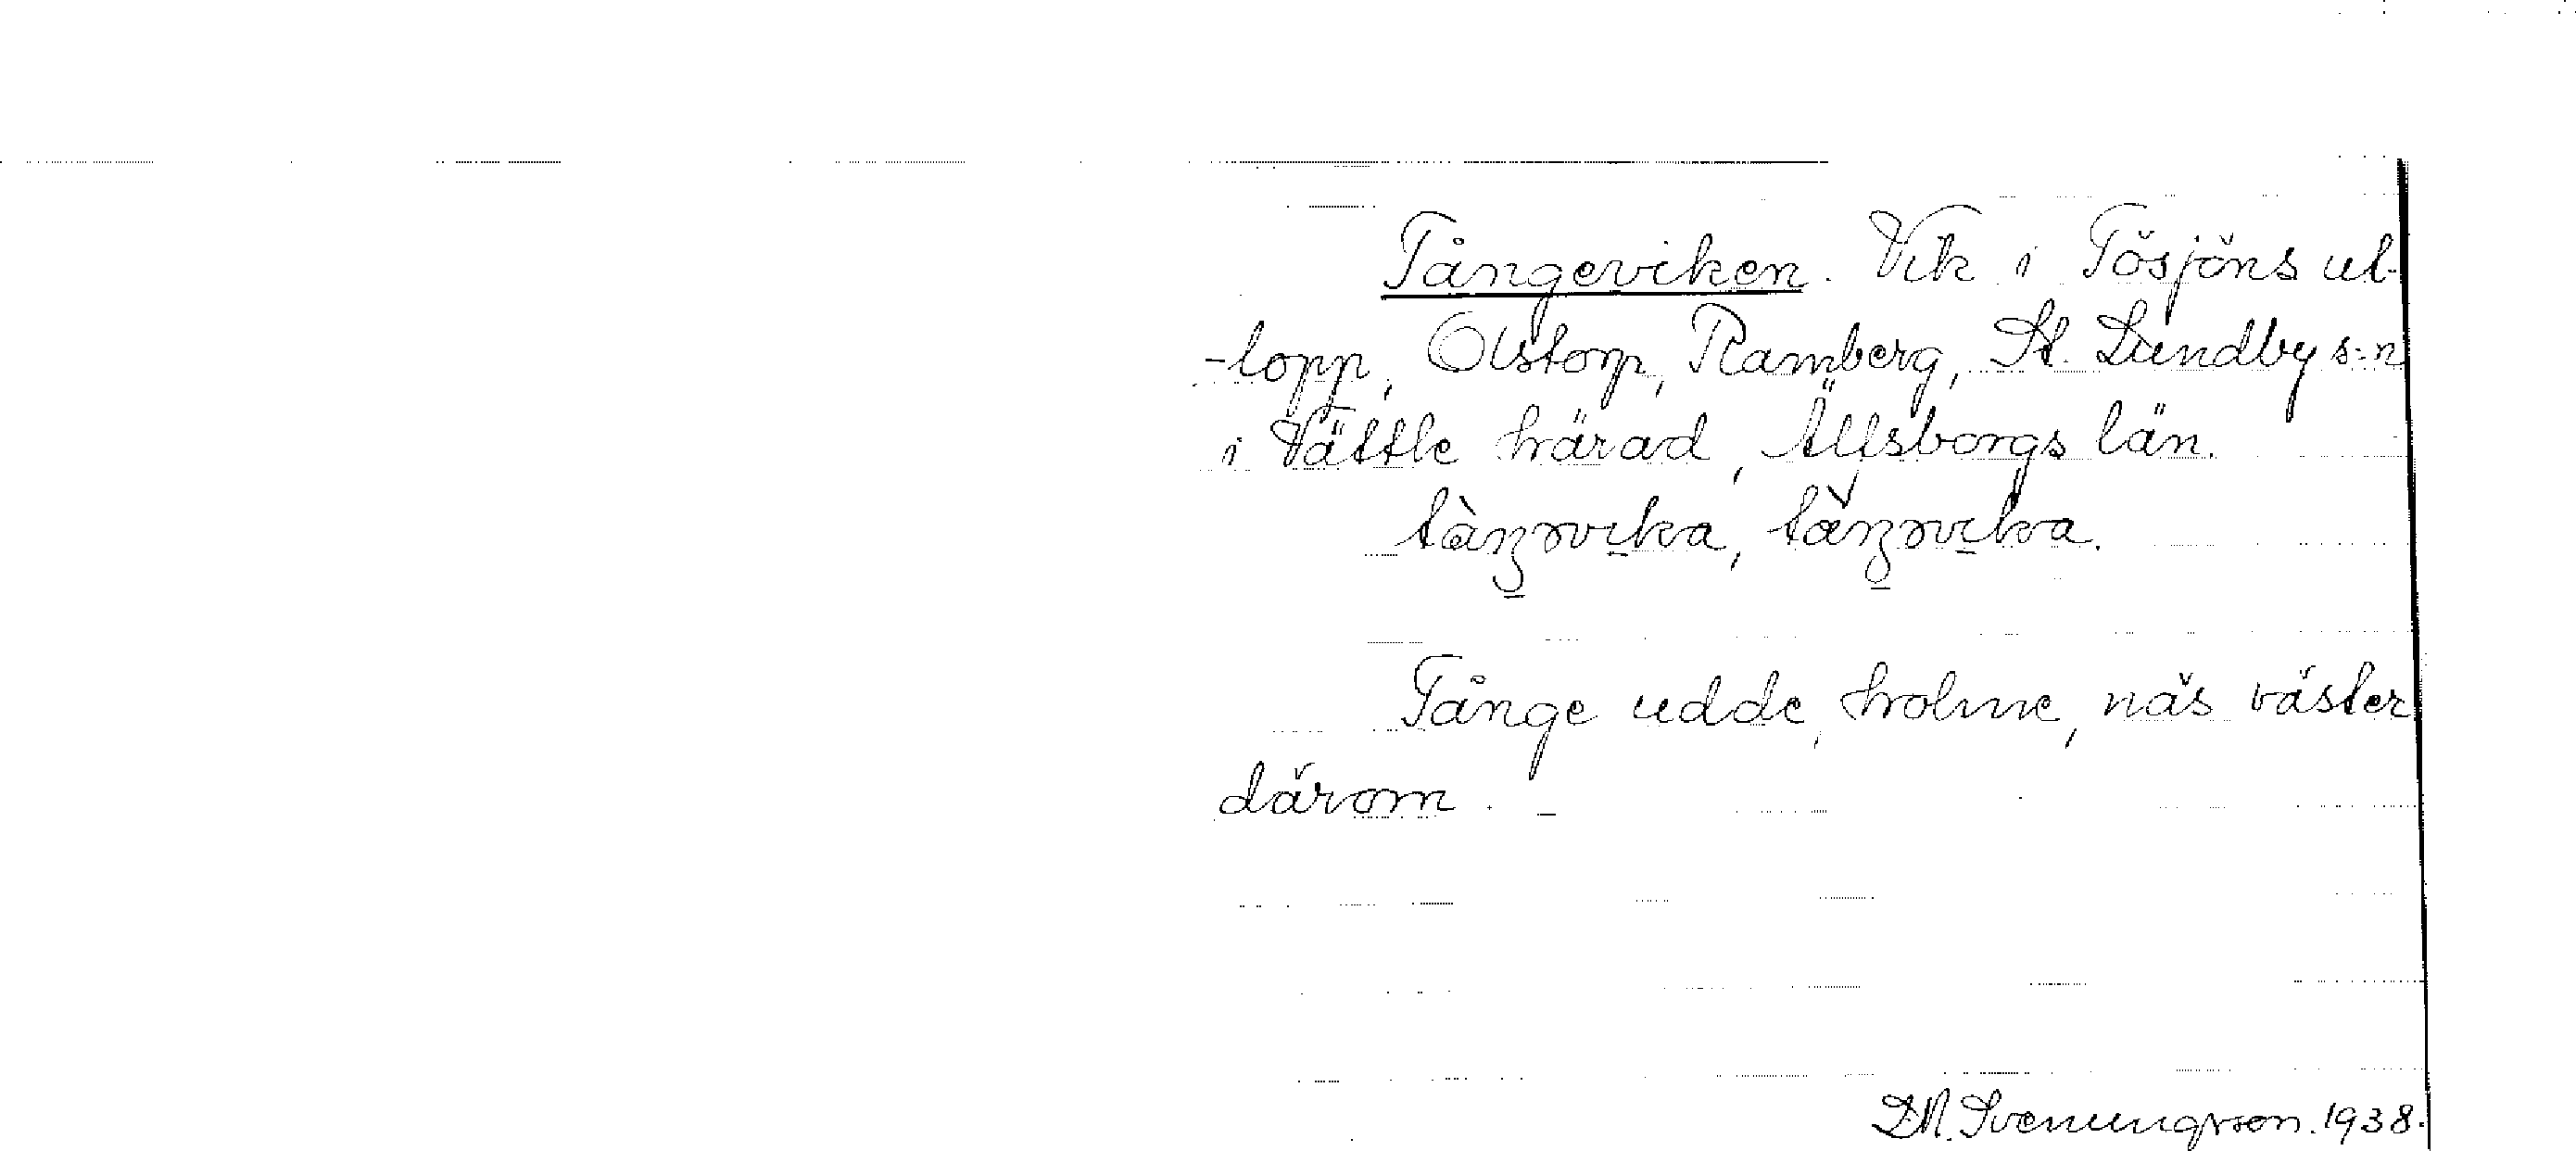 Tångeviken. Vik i Tösjöns ut-
-lopp, Olstorp, Ramberg, St. Lundby s:n
i Vättle härad, Älfsborgs län.
Tånge udde, holme, näs väster
därom. –
Svenungsson. 1938.